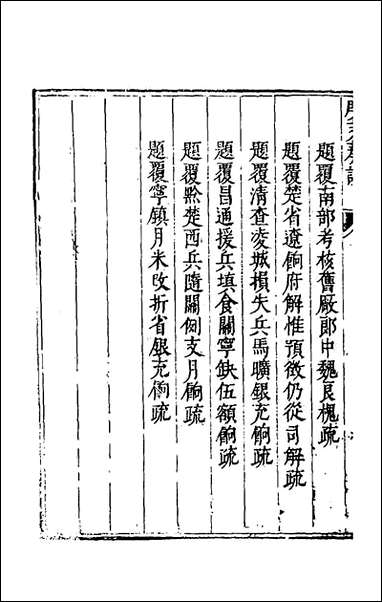 題覆南部考核舊厫郎中魏良槐疏
題覆楚省遼餉府解惟預徵仍從司解疏
題覆清查凌城損失兵馬曠銀充餉疏
題覆昌通援兵填食關寧缺伍額餉疏
題覆黔楚西兵隨關例支月餉疏
題覆寧鎮月米改折省銀充餉疏